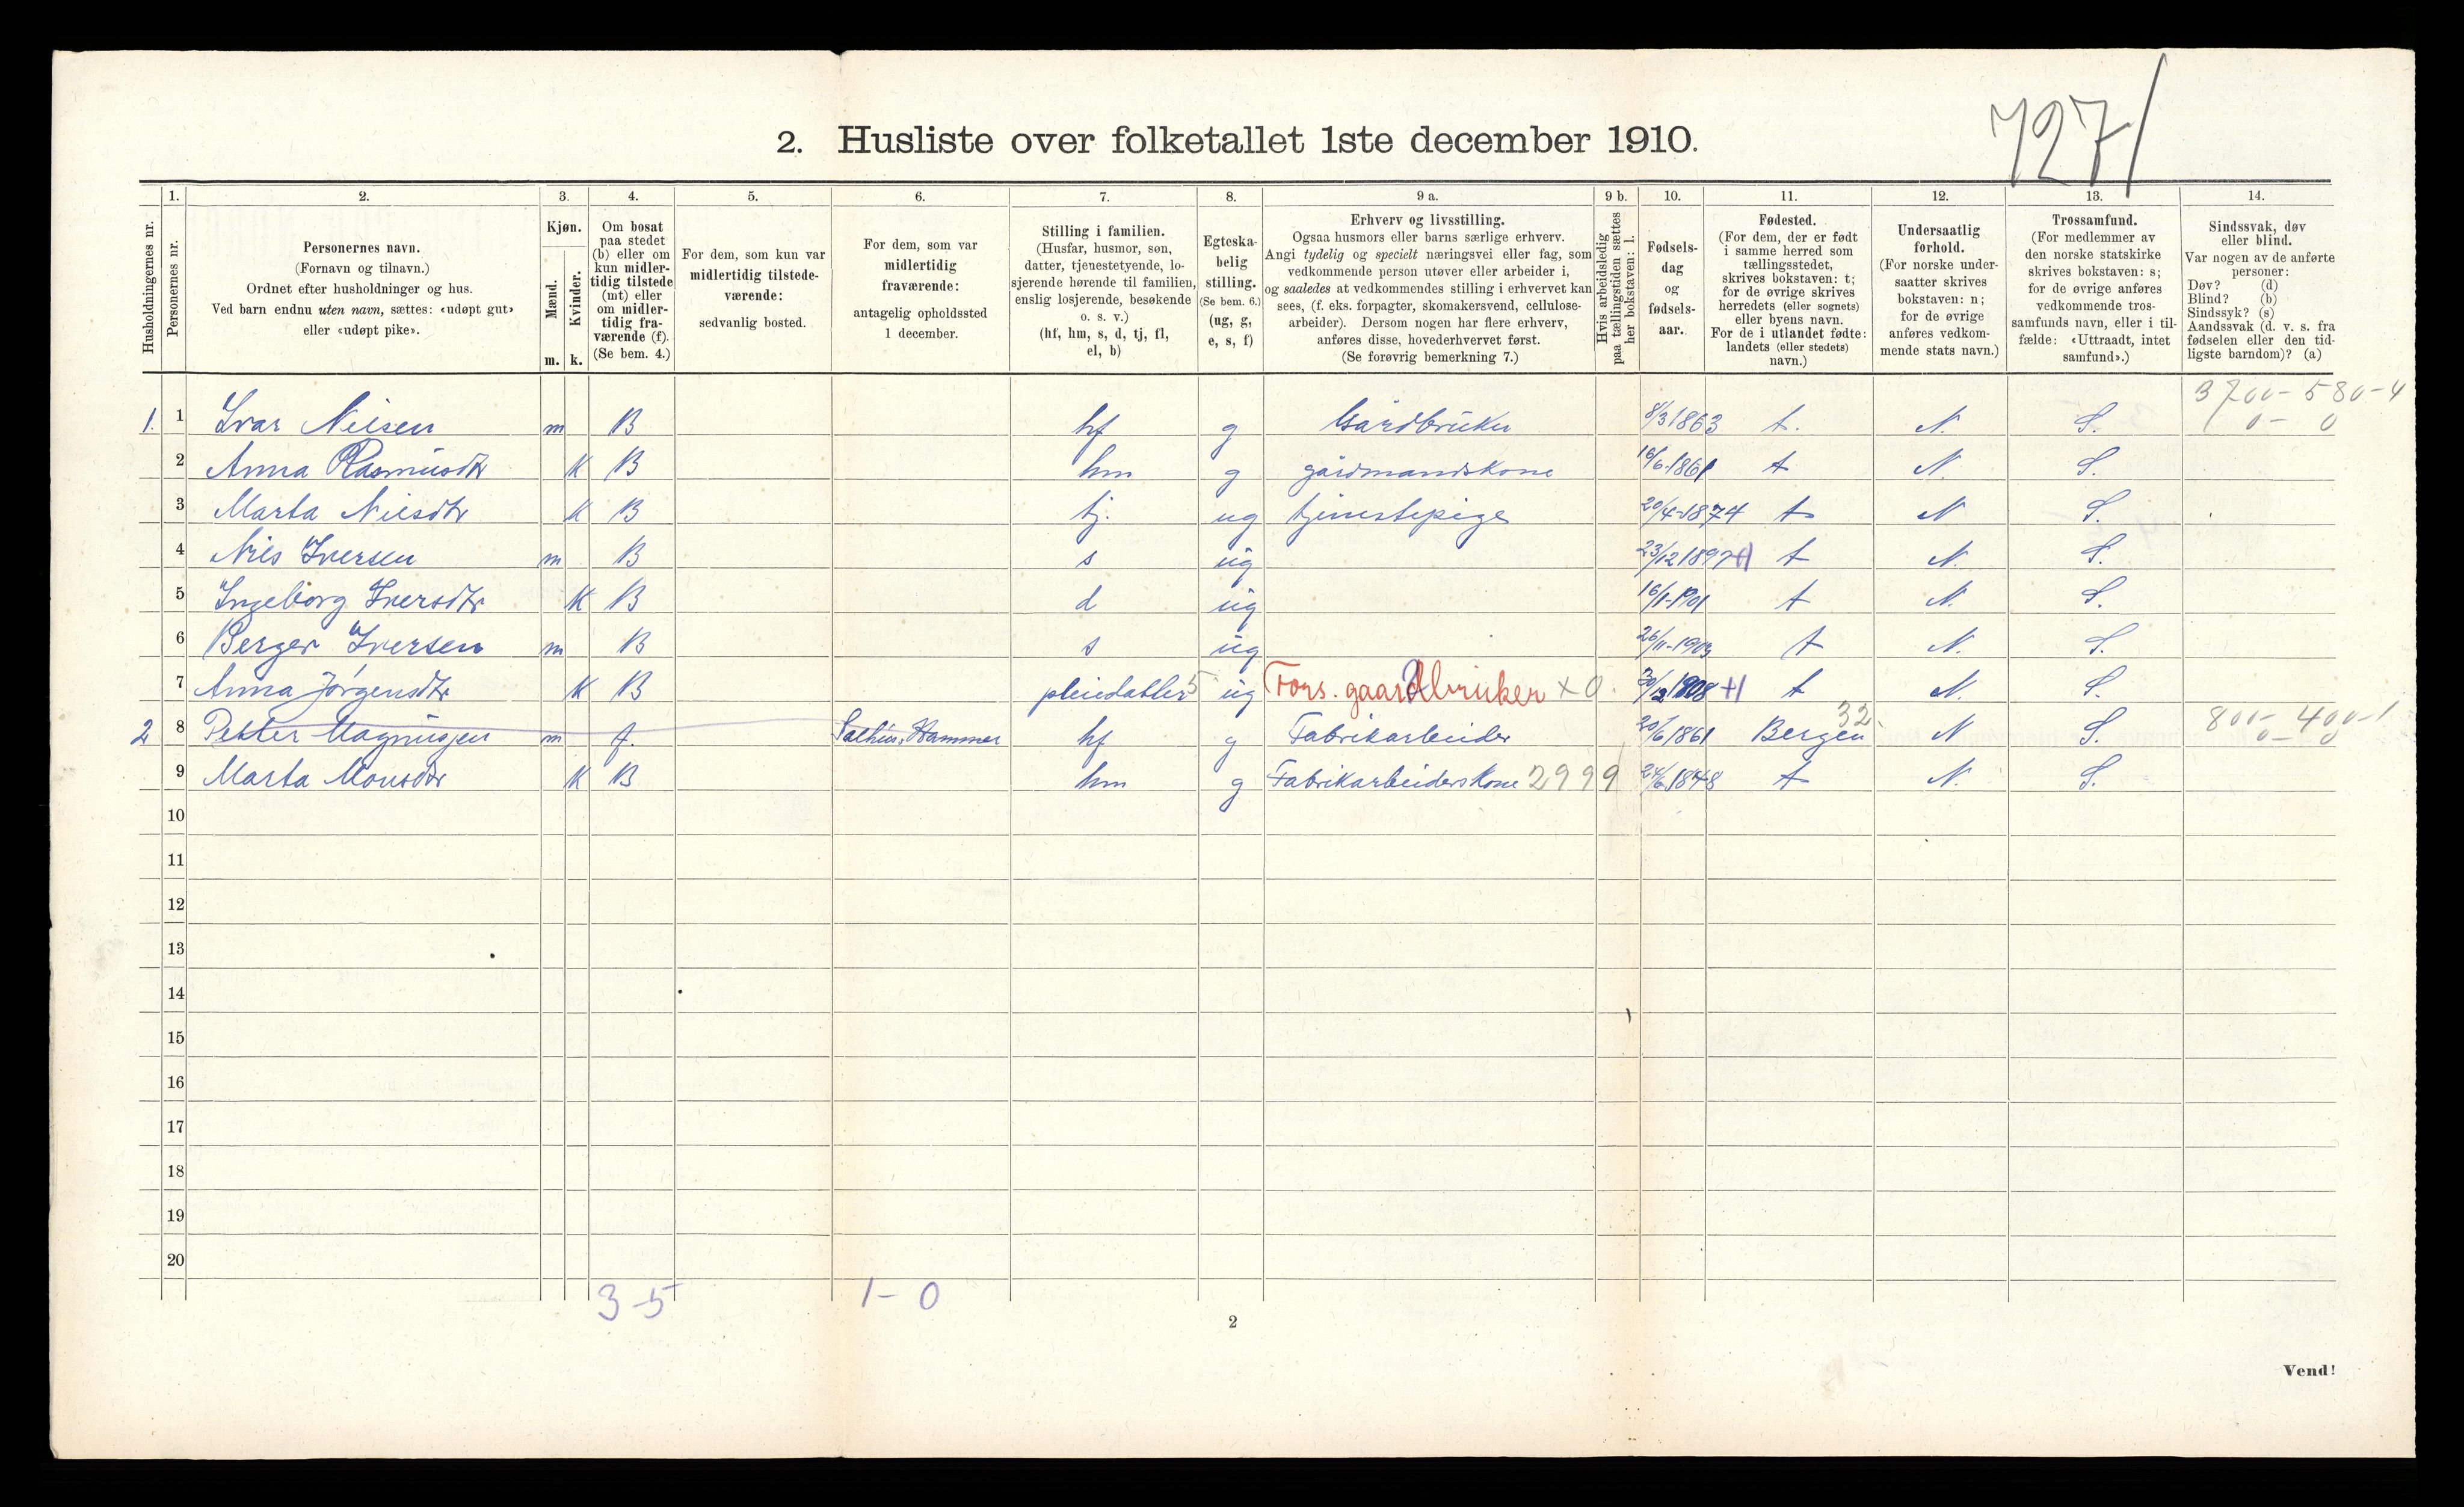 727/
2. Husliste over folketallet 1ste december 1910.
Husholdningernes nr.
1.
Personernes nr.
2.
Personernes navn.
(Fornavn og tilnavn.)
Ordnet efter husholdninger og hus.
Ved barn endnu uten navn, sættes: «udøpt gut»
eller «udøpt pike».
3.
Kjøn.
Mænd.
m.
Kvinder.
k.
4.
Om bosat
paa stedet
(b) eller om
kun midler-
tidig tilstede
(mt) eller
om midler-
tidig fra-
værende (f).
(Se bem. 4.)
5.
For dem, som kun var
midlertidig tilstede-
værende:
sedvanlig bosted.
6.
For dem, som var
midlertidig
fraværende:
antagelig opholdssted
1 december.
7.
Stilling i familien.
(Husfar, husmor, søn,
datter, tjenestetyende, lo-
sjerende hørende til familien,
enslig losjerende, besøkende
o. s. v.)
(hf, hm, s, d, tj, fl,
el, b)
8.
Egteska-
belig
stilling.
(Se bem. 6.)
(ug, g,
e, s, f)
9 a.
Erhverv og livsstilling.
Ogsaa husmors eller barns særlige erhverv.
Angi tydelig og specielt næringsvei eller fag, som
vedkommende person utøver eller arbeider i,
og saaledes at vedkommendes stilling i erhvervet kan
sees, (f. eks. forpagter, skomakersvend, cellulose-
arbeider). Dersom nogen har flere erhverv,
anføres disse, hovederhvervet først.
(Se forøvrig bemerkning 7.)
9 b.
Hvis arbeidsledig
paa tællingstiden sættes
her bokstaven: l.
10.
Fødsels-
dag
og
fødsels-
aar.
11.
Fødested.
(For dem, der er født
i samme herred som
tællingsstedet,
skrives bokstaven: t;
for de øvrige skrives
herredets (eller sognets)
eller byens navn.
For de i utlandet fødte:
landets (eller stedets)
navn.)
12.
Undersaatlig
forhold.
(For norske under-
saatter skrives
bokstaven: n;
for de øvrige
anføres vedkom-
mende stats navn.)
13.
Trossamfund.
(For medlemmer av
den norske statskirke
skrives bokstaven: s;
for de øvrige anføres
vedkommende tros-
samfunds navn, eller i til-
fælde: «Uttraadt, intet
samfund».)
14.
Sindssvak, døv
eller blind.
Var nogen av de anførte
personer:
Døv? (d)
Blind? (b)
Sindssyk? (s)
Aandssvak (d. v. s. fra
fødselen eller den tid-
ligste barndom)? (a)
3700-580-4
1. 1 Ivar Nilsen m B hf g Gårdbruker 8/3 1863 t. N. S. 0- 0
2 Anna Rasmusdtr K B hm g gårdmandskone 16/6-1861 t N. S.
3 Marta Nilsdtr K B tj. ug tjenestepige 20/4-1874 t N S.
4 Nils Iversen m B s ug 23/12 1897 +1 t N. S.
5 Ingeborg Iversdtr K B d ug 16/1-1901 t N. S.
6 Berger Iversen m B s ug 26/11-1903 t N. S.
7 Anna Jørgensdtr K B pleiedatter 5 ug Fors. gaardbruker x 0. 30/12 1908 +1 t N. S.
2 8 Petter Magnussen m f. Salhus, Hammer hf g Fabrikarbeider 20/6 1861 Bergen 32. N S. 800- 400-1
0- 0
9 Marta Monsdtr K B hm g Fabrikarbeiderskone 2999 24/6 1848 t N. S.
10
11
12
13
14
15
16
17
18
19
20
3-5 1- 0
2
Vend!